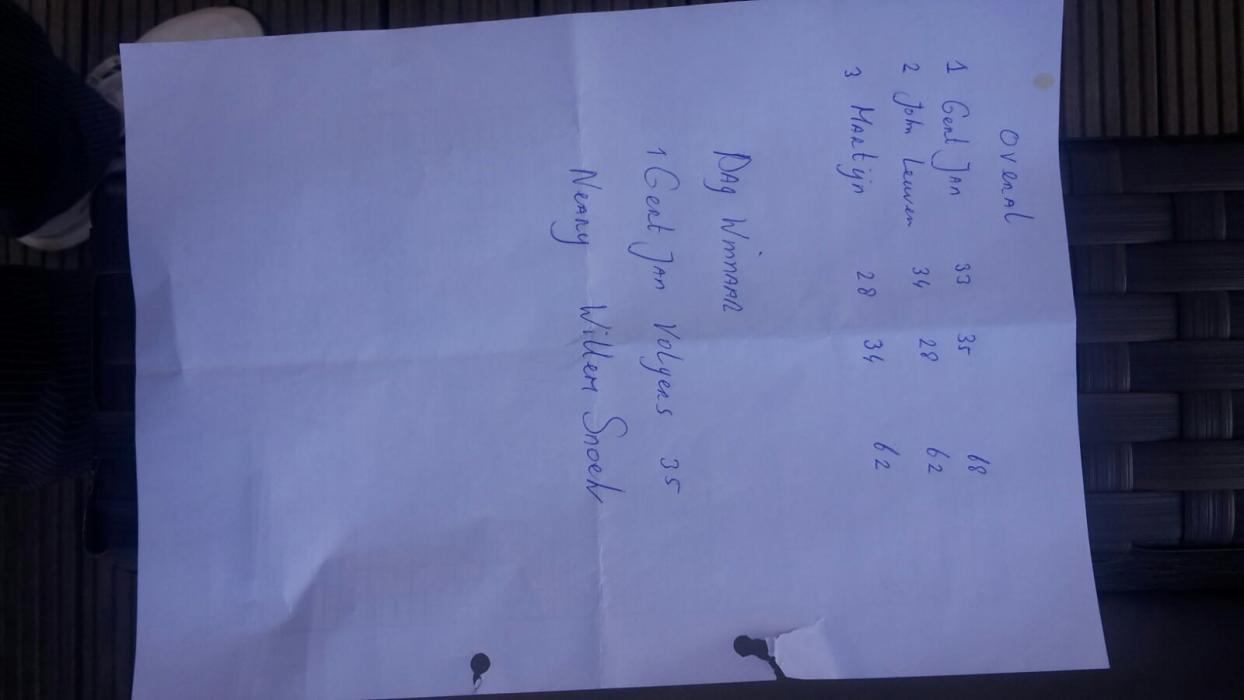 OVERAL
1 Gert Jan 33 35 68
2 John Leuven 34 28 62
3 Martijn 28 34 62
Dag Winnaar
1 Gert Jan Volgers 35
Neary Willem Snoek